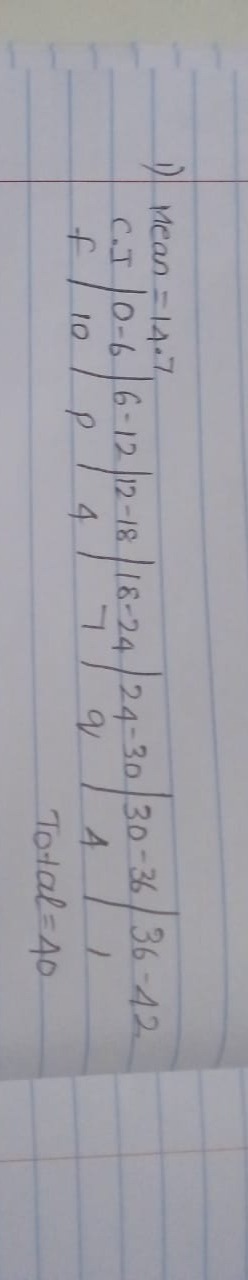 1) Mean = 14.7
C.I | 0-6 | 6-12 | 12-18 | 18-24 | 24-30 | 30-36 | 36-42
f | 10 | p | 4 | 7 | q | 4 | 1
Total = 40